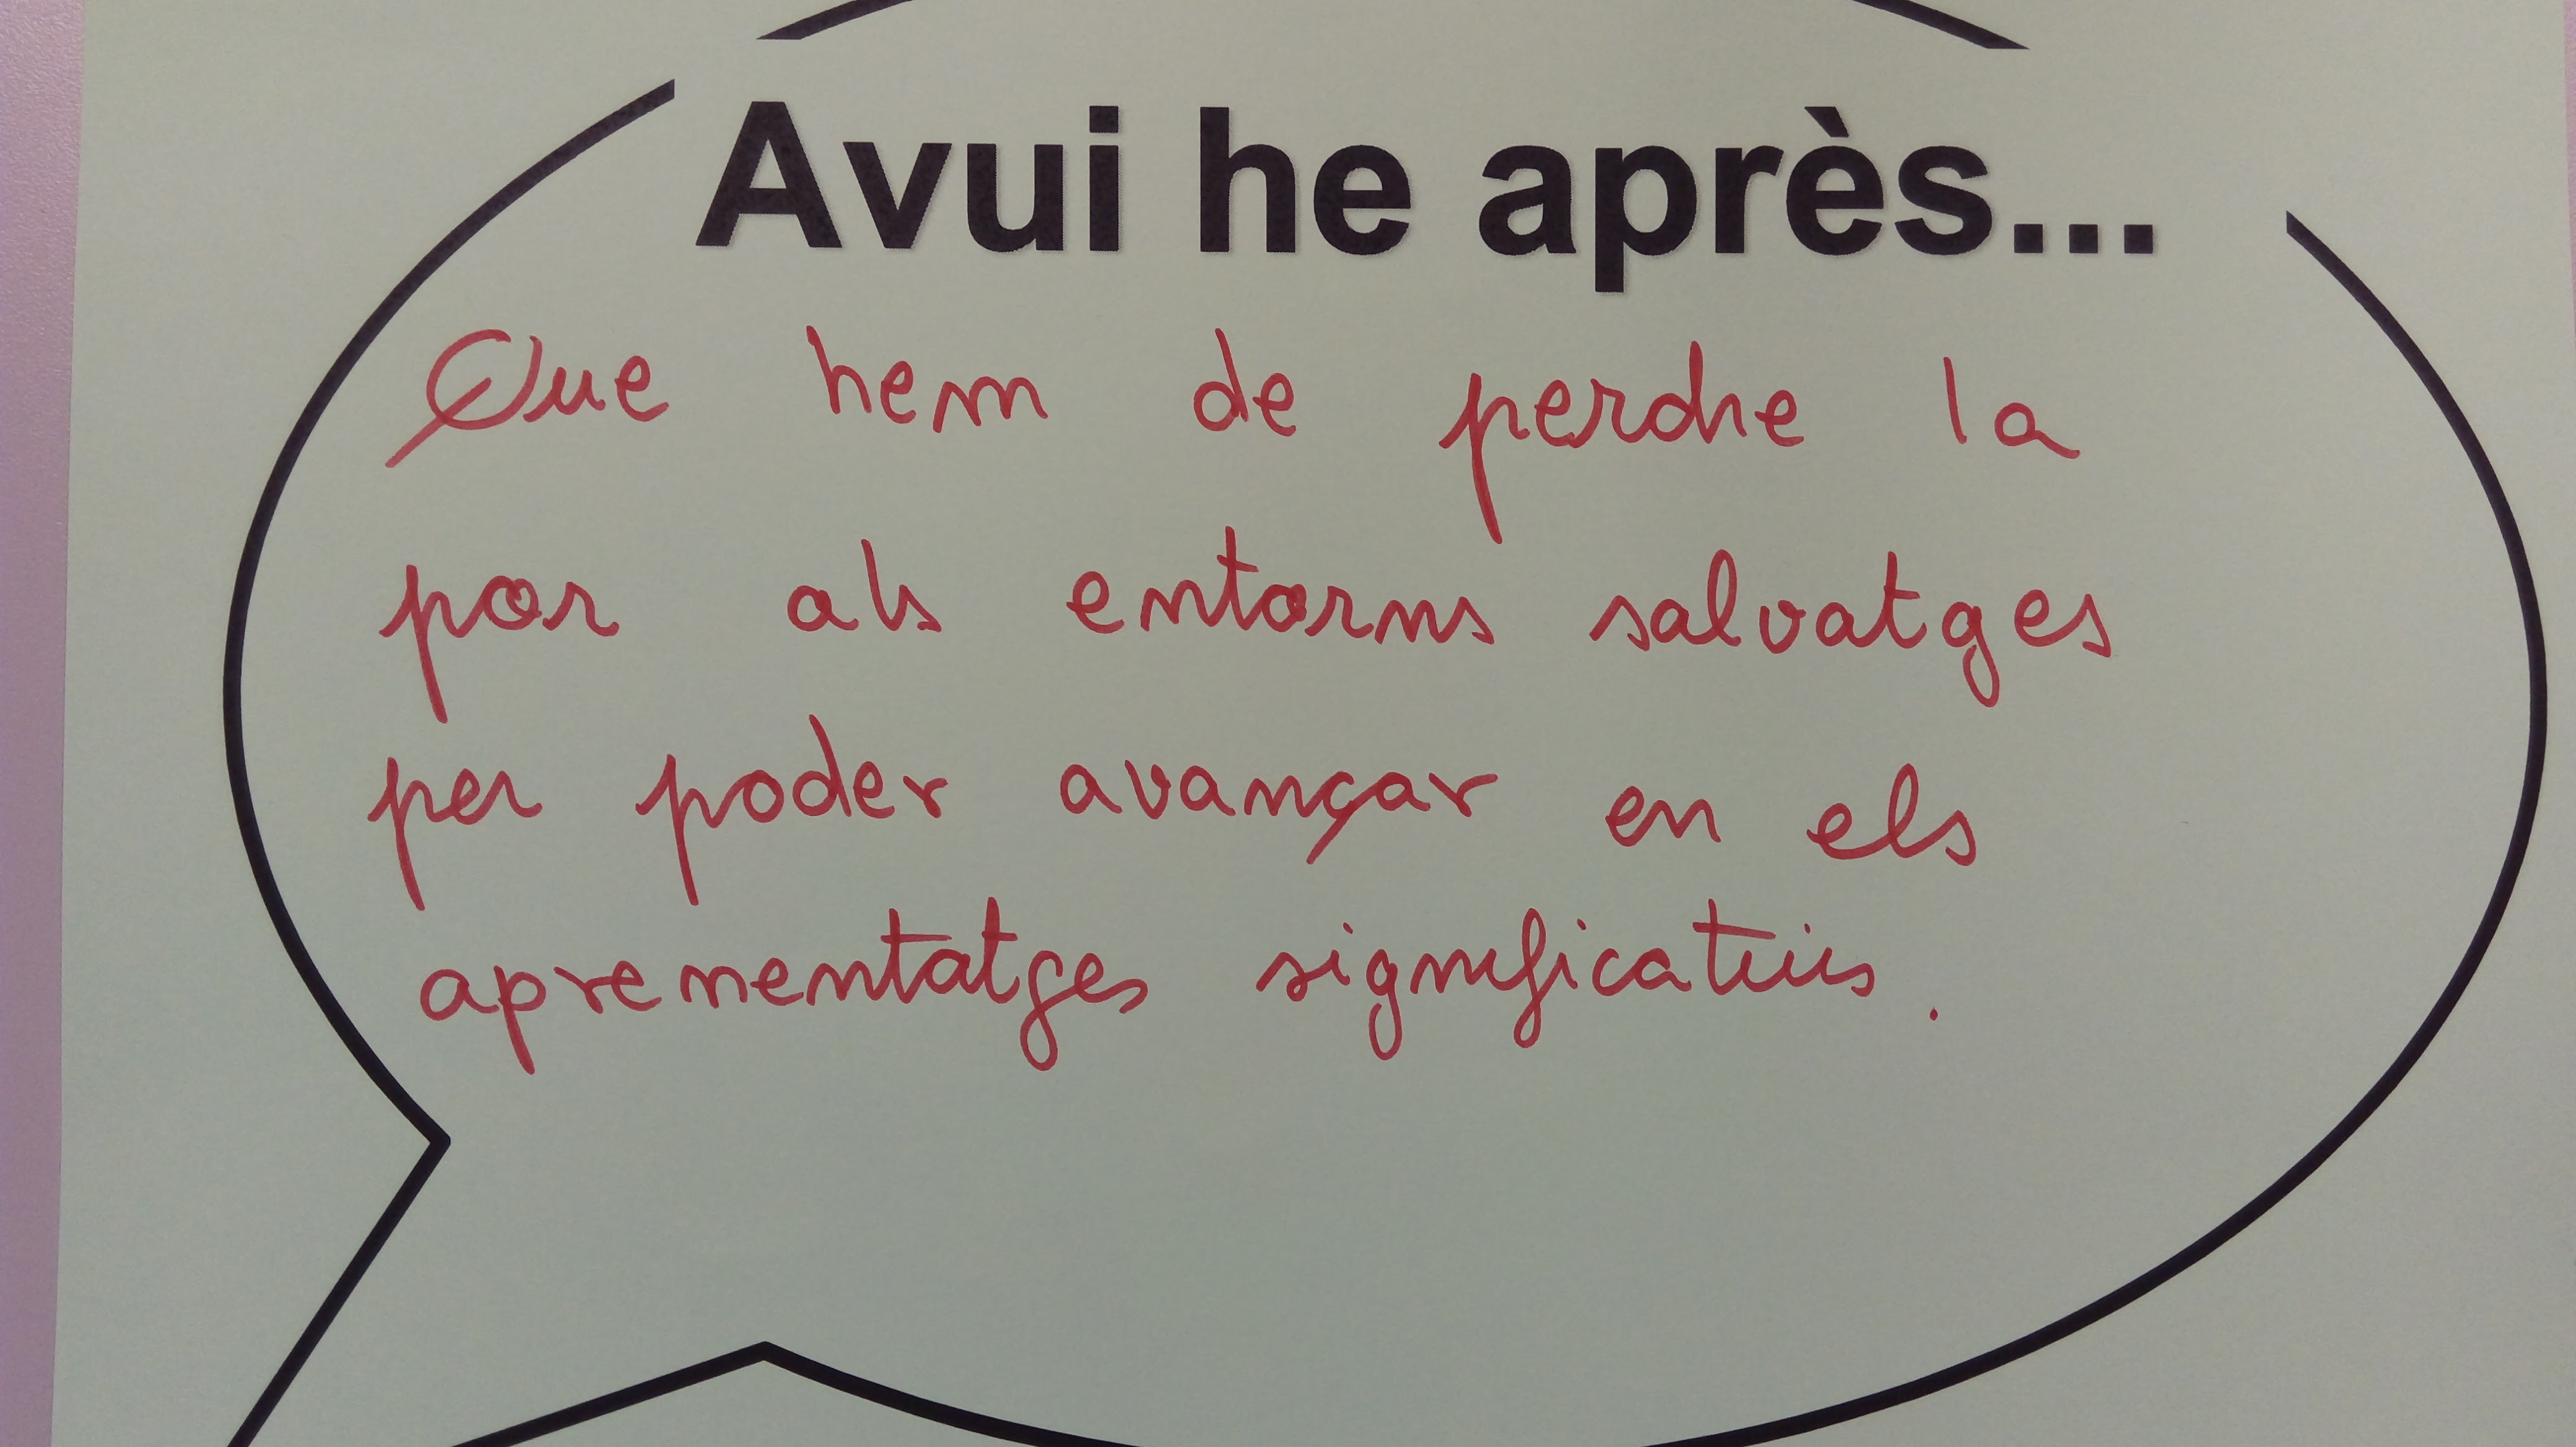 Avui he après...
Que hem de perdre la
por als entorns salvatges
per poder avançar en els
aprenentatges significatius.